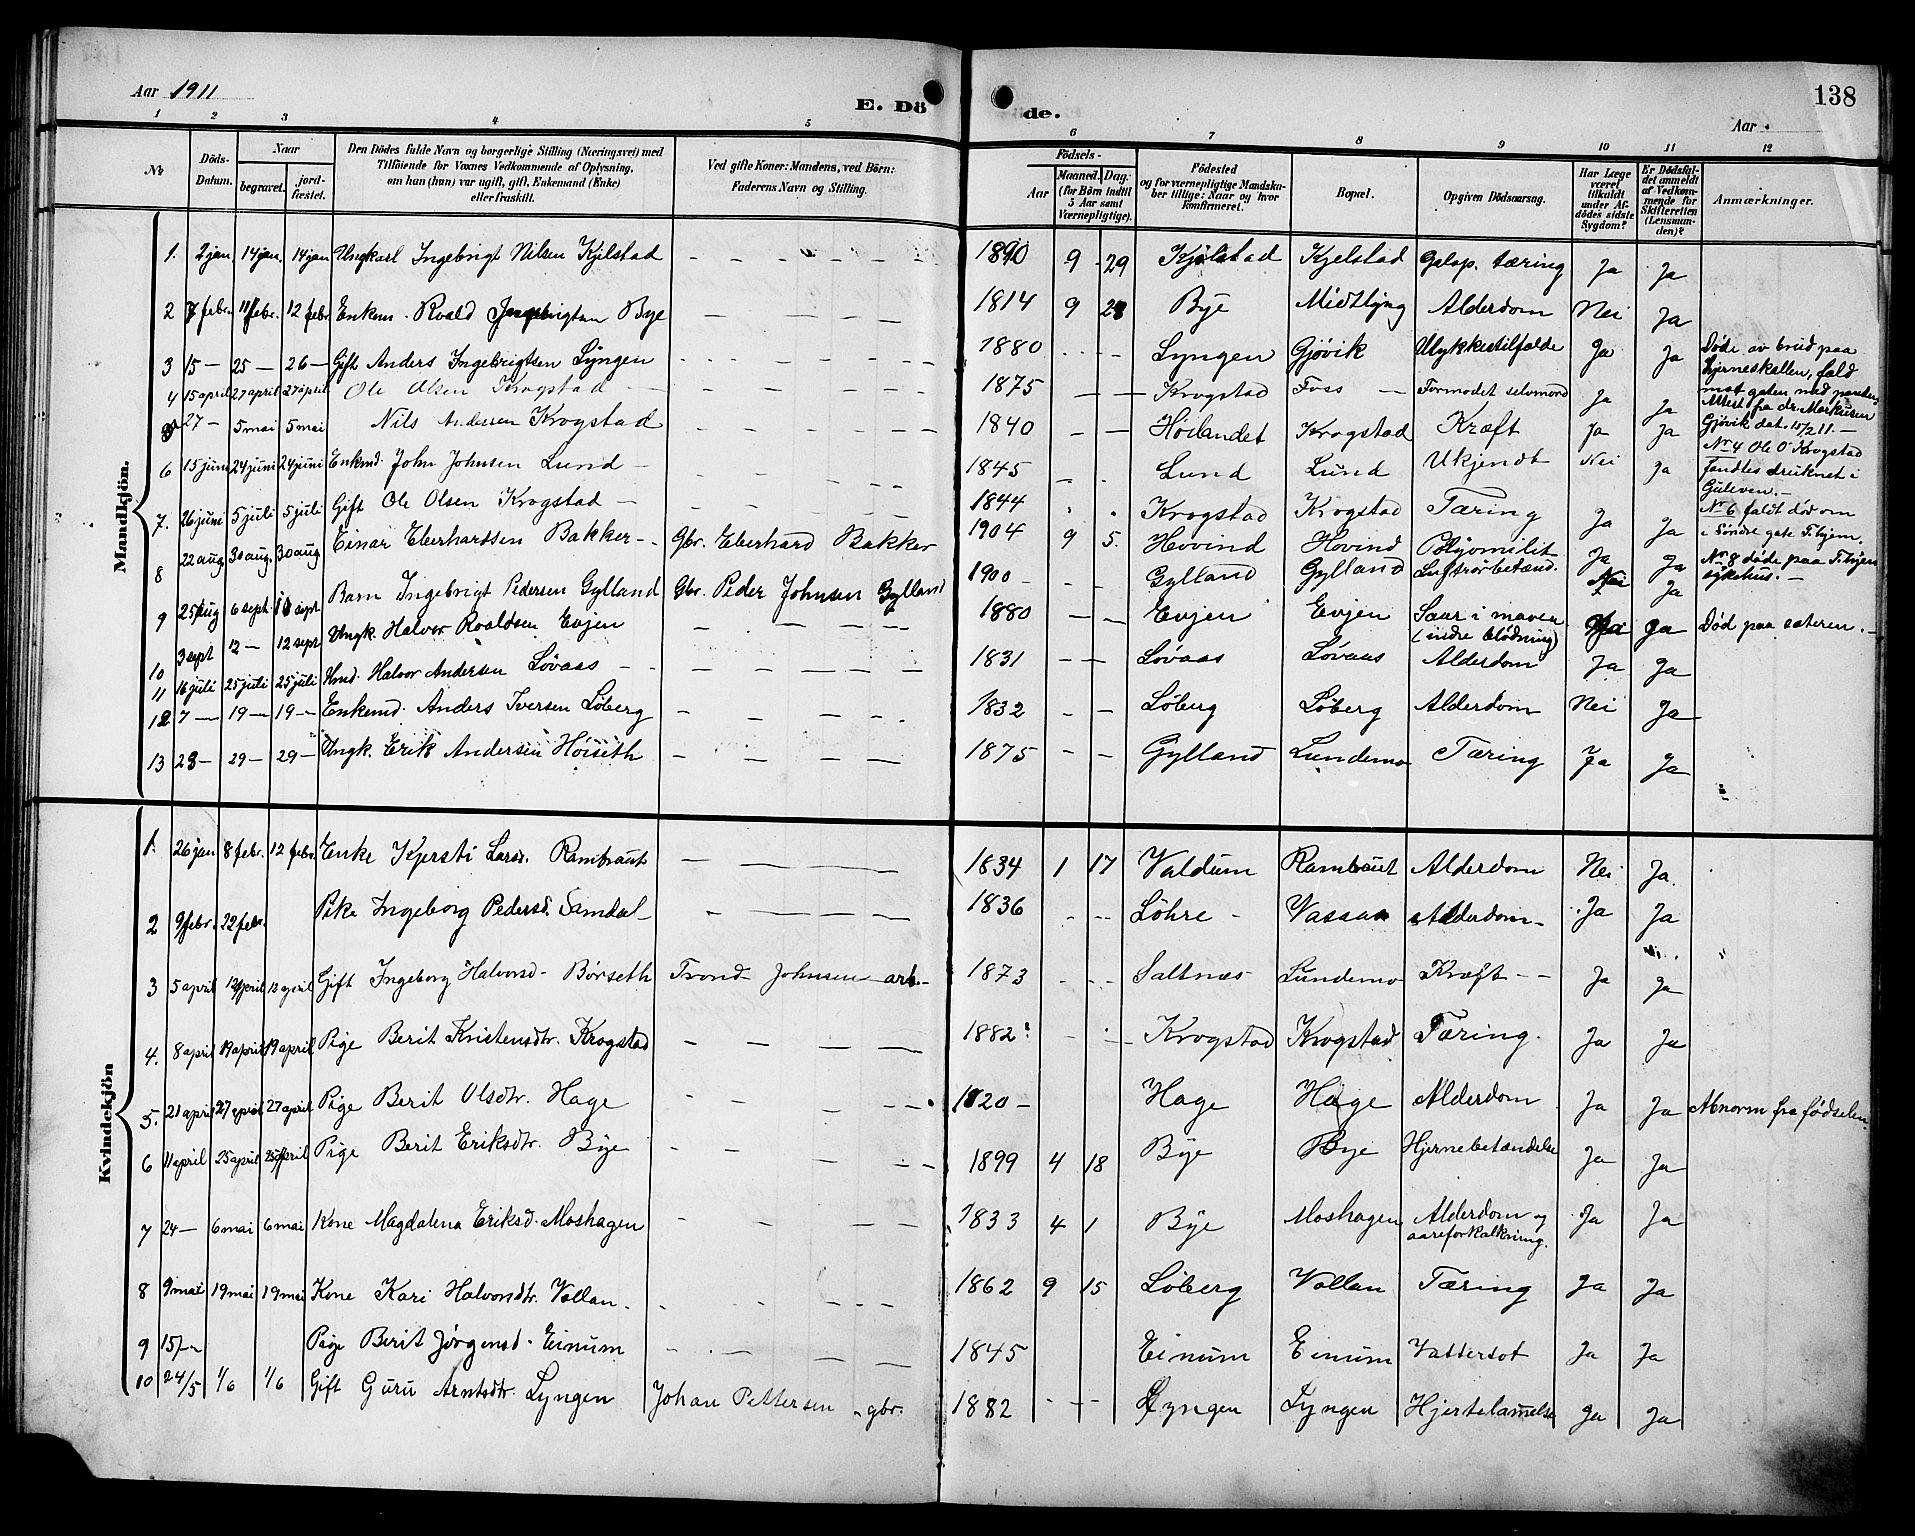 Aar 1911
E. Dö
de.
138
Aar
1 2 3 4 5 6 7 8 9 10 11 12
No
Döds-Datum.
Naar
begravet.
jord-fæstet.
Den Dödes fulde Navn og borgerlige Stilling (Næringsvei) med Tilföiende for Voxnes Vedkommende af Oplysning, om han (hun) var ugift, gift, Enkemand (Enke) eller fraskilt.
Ved gifte Koner: Mandens, ved Börn: Faderens Navn og Stilling.
Födsels-
Aar
Maaned. Dag. (for Börn indtil 5 Aar samt Værnepligtige).
Födested og for værnepligtige Mandskaber tillige: Naar og hvor konfirmeret.
Bopæl.
Opgiven Dödsaarsag.
Har Læge været tilkaldt under Afdödes sidste Sygdom?
Er Dödsfaldet anmeldt af Vedkommende for Skifteretten (Lensmanden)?
Anmærkninger.
Mandkjön.
1. 2 jan. 14 jan. 14 jan Ungkarl Ingebrigt Nilsen Kjelstad 1890 9 29 Kjelstad Kjelstad Galop. tæring Ja Ja
2 7 febr. 11 febr. 12 febr. Enkem. Roald Ingebrigtsen Bye 1814 9 28 Bye Midtlyng Alderdom Nei Ja
3 15 — 25 — 26 — Gift Anders Ingebrigtsen Lyngen 1880 Lyngen Gjøvik Ulykkestilfælde Ja Ja Døde av brud paa hjerneskallen, fald mot gaten med panden. Attest fra dr. Markusen Gjøvik dat. 15/2 11. —
4 15 april 27 april 27 april Ole Olsen Krogstad — 1875 Krogstad Foss — Formodet selvmord Ja Ja No 4 Ole O Krogstad fandtes druknet i Guleven. —
5 27 — 5 mai 5 mai Nils Andersen Krogstad 1840 Höilandet Krogstad Kræft Ja Ja
6 15 juni 24 juni 24 juni Enkmd. John Johnsen Lund — 1845 Lund Lund Ukjendt Nei Ja No 6 faldt død om i Søndre gate T.hjem.
7. 26 juni 5 juli 5 juli Gift Ole Olsen Krogstad — 1844 Krogstad Krogstad Tæring Ja Ja
8 22 aug 30 aug. 30 aug Einar Eberhardsen Bakker Gbr. Eberhard Bakker 1904 9 5. Hovind Hovind Poliomilit Ja Ja No 8 døde paa T.hjem sykehus. —
9 25 aug 6 sept. 10 sept Barn Ingebrigt Pedersen Gylland Gbr. Peder Johnsen Gylland 1900 Gylland Gylland Luftrørbetænd. Nei Ja
10 3 sept 12 — 12 sept Ungk. Halvor Roaldsen Evjen 1880 Evjen Evjen Saar i maven (indre blødning) Ja Død paa sæteren. —
11 16 juli 25 juli 25 juli Kmd. Halvor Andersen Løvaas 1831 Løvaas Løvaas Alderdom Ja Ja
12 7 — 19 — 19 — Enkemd. Anders Iversen Løberg 1832 Løberg Løberg Alderdom Nei Ja
13 23 — 29 — 29 — Ungk. Erik Andersen Höiseth 1875 Gylland Lundemo Tæring Ja Ja
Kvindekjön
1. 26 jan 8 febr. 12 febr. Enke Kjersti Larsd. Rambraut 1834 1 17 Valdum Rambraut Alderdom Nei Ja.
2 9 febr. 22 febr. Pike Ingeborg Pedersd. Samdal 1836 Løhre — Vassaa Alderdom — Ja Ja
3 5 april 12 april 12 april Gift Ingeborg Halvorsd. Børseth Trond Johnsen arb. 1873 Saltnæs Lundemo Kræft Ja Ja
4. 8 april 19 april 19 april Pige Berit Kristensdtr. Krogstad 1882 Krogstad Krogstad Tæring. Ja Ja
5. 21 april 27 april 27 april Pige Berit Olsdtr. Hage 1820 — Hage Hage Alderdom Ja Ja Abnorm fra fødselen
6 11 april 25 april 25 april Pige Berit Eriksdtr. Bye 1899 4 18 Bye Bye Hjernebetændelse Ja Ja
7 24 — 6 mai 6 mai Kone Magdalena Eriksd. Moshagen 1833 4 1 Bye Moshagen Alderdom og aareforkalkning. Ja Ja
8 9 mai 19 mai 19 mai Kone Kari Halvorsdtr. Vollan. 1862 9 15 Løberg Vollan Tæring Ja Ja
9 15/- Pige Berit Jørgensd. Einum 1845 Einum Einum Vattersot Ja Ja
10 24/5 1/6 1/6 Gift Guru Arntsdtr. Lyngen Johan Pettersen gbr. 1882 Lyngen Lyngen Hjertelammelse Ja Ja